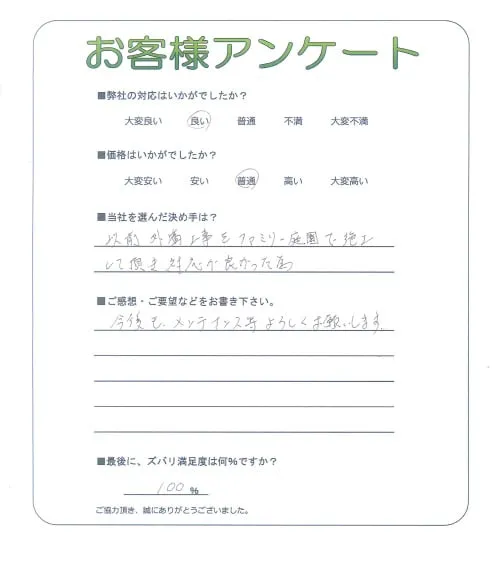 お客様アンケート
■弊社の対応はいかがでしたか？
大変良い 良い 普通 不満 大変不満
■価格はいかがでしたか？
大変安い 安い 普通 高い 大変高い
■当社を選んだ決め手は？
以前 外溝工事をファミリー庭園で施工
して頂き 対応が良かった為
■ご感想・ご要望などをお書き下さい。
今後も、メンテナンス等よろしくお願いします。
■最後に、ズバリ満足度は何%ですか？
100 %
ご協力頂き、誠にありがとうございました。